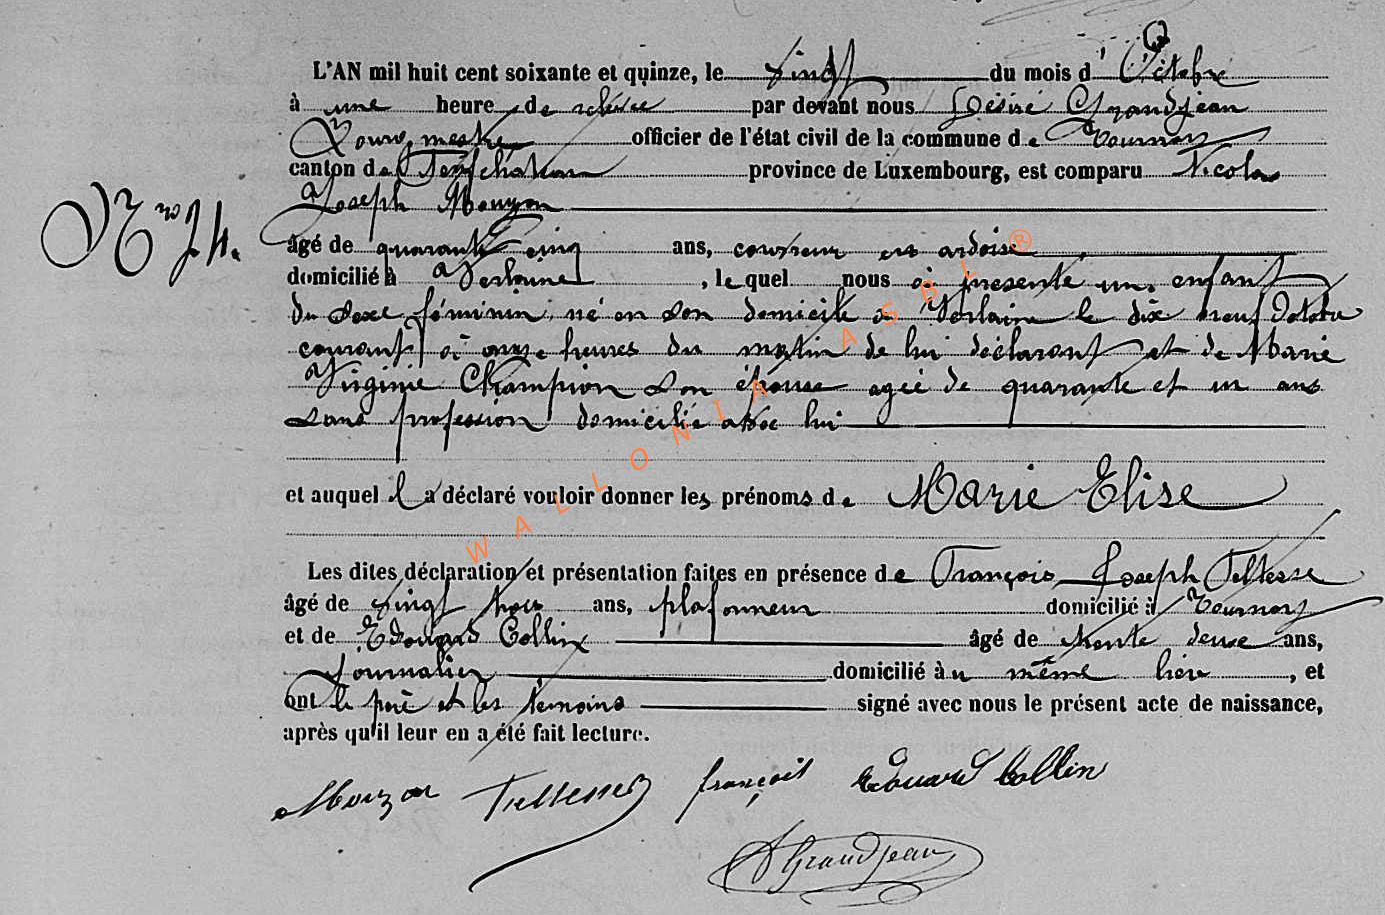 L'AN mil huit cent soixante et quinze, le vingt du mois d'Octobre
à une heure de relevée par devant nous Désiré Grandjean
Bourgmestre officier de l'état civil de la commune de Tournay
canton de Neufchâteau province de Luxembourg, est comparu Nicolas
Joseph Mouzon
Nro 74.
âgé de quarante cinq ans, couvreur en ardoise
domicilié à Verlaine, lequel nous a présenté un enfant
du sexe féminin, né en son domicile à Verlaine le dix neuf Octobre
courant à onze heures du matin de lui déclarant et de Marie
Virginie Champion son épouse agée de quarante et un ans
sans profession domiciliée avec lui
et auquel il a déclaré vouloir donner les prénoms de Marie Elise
Les dites déclaration et présentation faites en présence de François Joseph Feltesse
âgé de vingt trois ans, plafonneur domicilié à Tournay
et de Edouard Collin âgé de trente deux ans,
Journalier domicilié au même lieu, et
ont le père et les témoins signé avec nous le présent acte de naissance,
après qu'il leur en a été fait lecture.
Mouzon Feltesse françois Edouard Collin
D Grandjean
WALLONIA ASBL ®